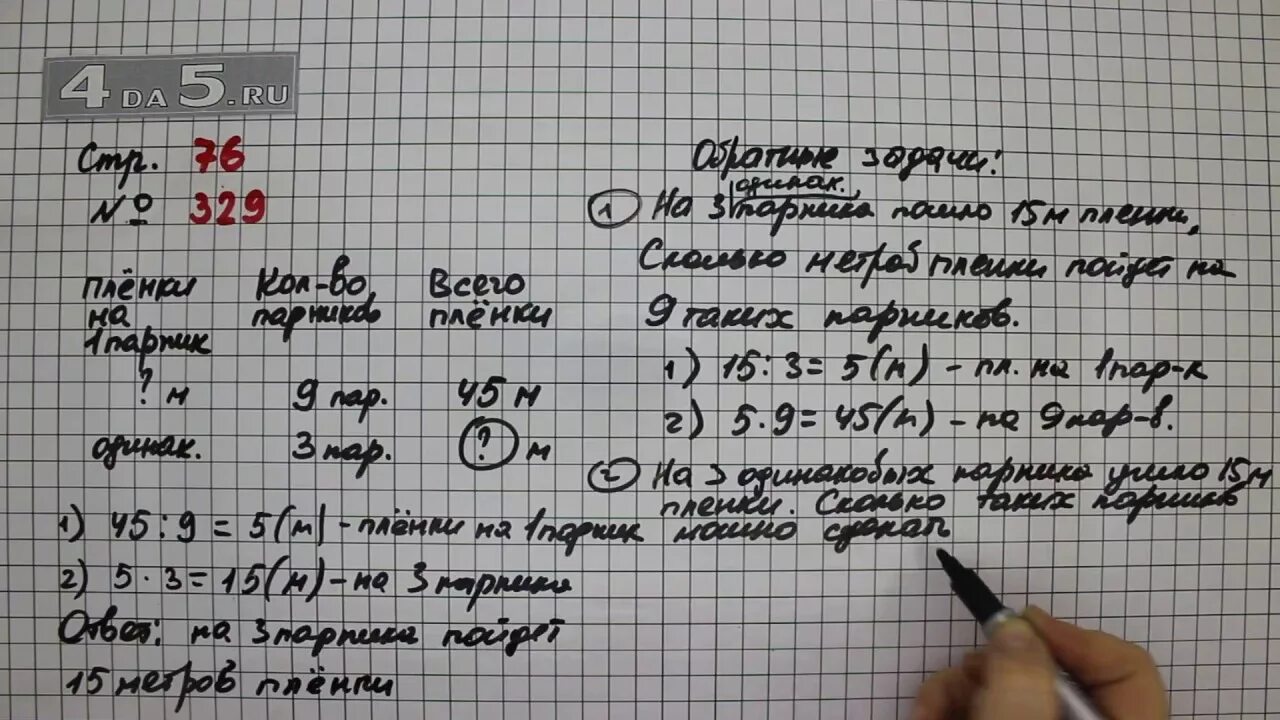 4DA5.RU
Стр. 76
№ 329
плёнки Кол-во Всего
на парников плёнки
1 парник
? м 9 пар. 45 м
одинак. 3 пар. ? м
1) 45 : 9 = 5 (м) - плёнки на 1 парник
2) 5 · 3 = 15 (м) - на 3 парника
Ответ: на 3 парника пойдет
15 метров плёнки
Обратные задачи:
одинак.
1 На 3 парника пошло 15 м пленки,
Сколько метров пленки пойдет на
9 таких парников.
1) 15 : 3 = 5 (м) - пл. на 1 пар-к
2) 5 · 9 = 45 (м) - на 9 пар-в.
2 На 3 одинаковых парника ушло 15 м
пленки. Сколько таких парников
можно сделать